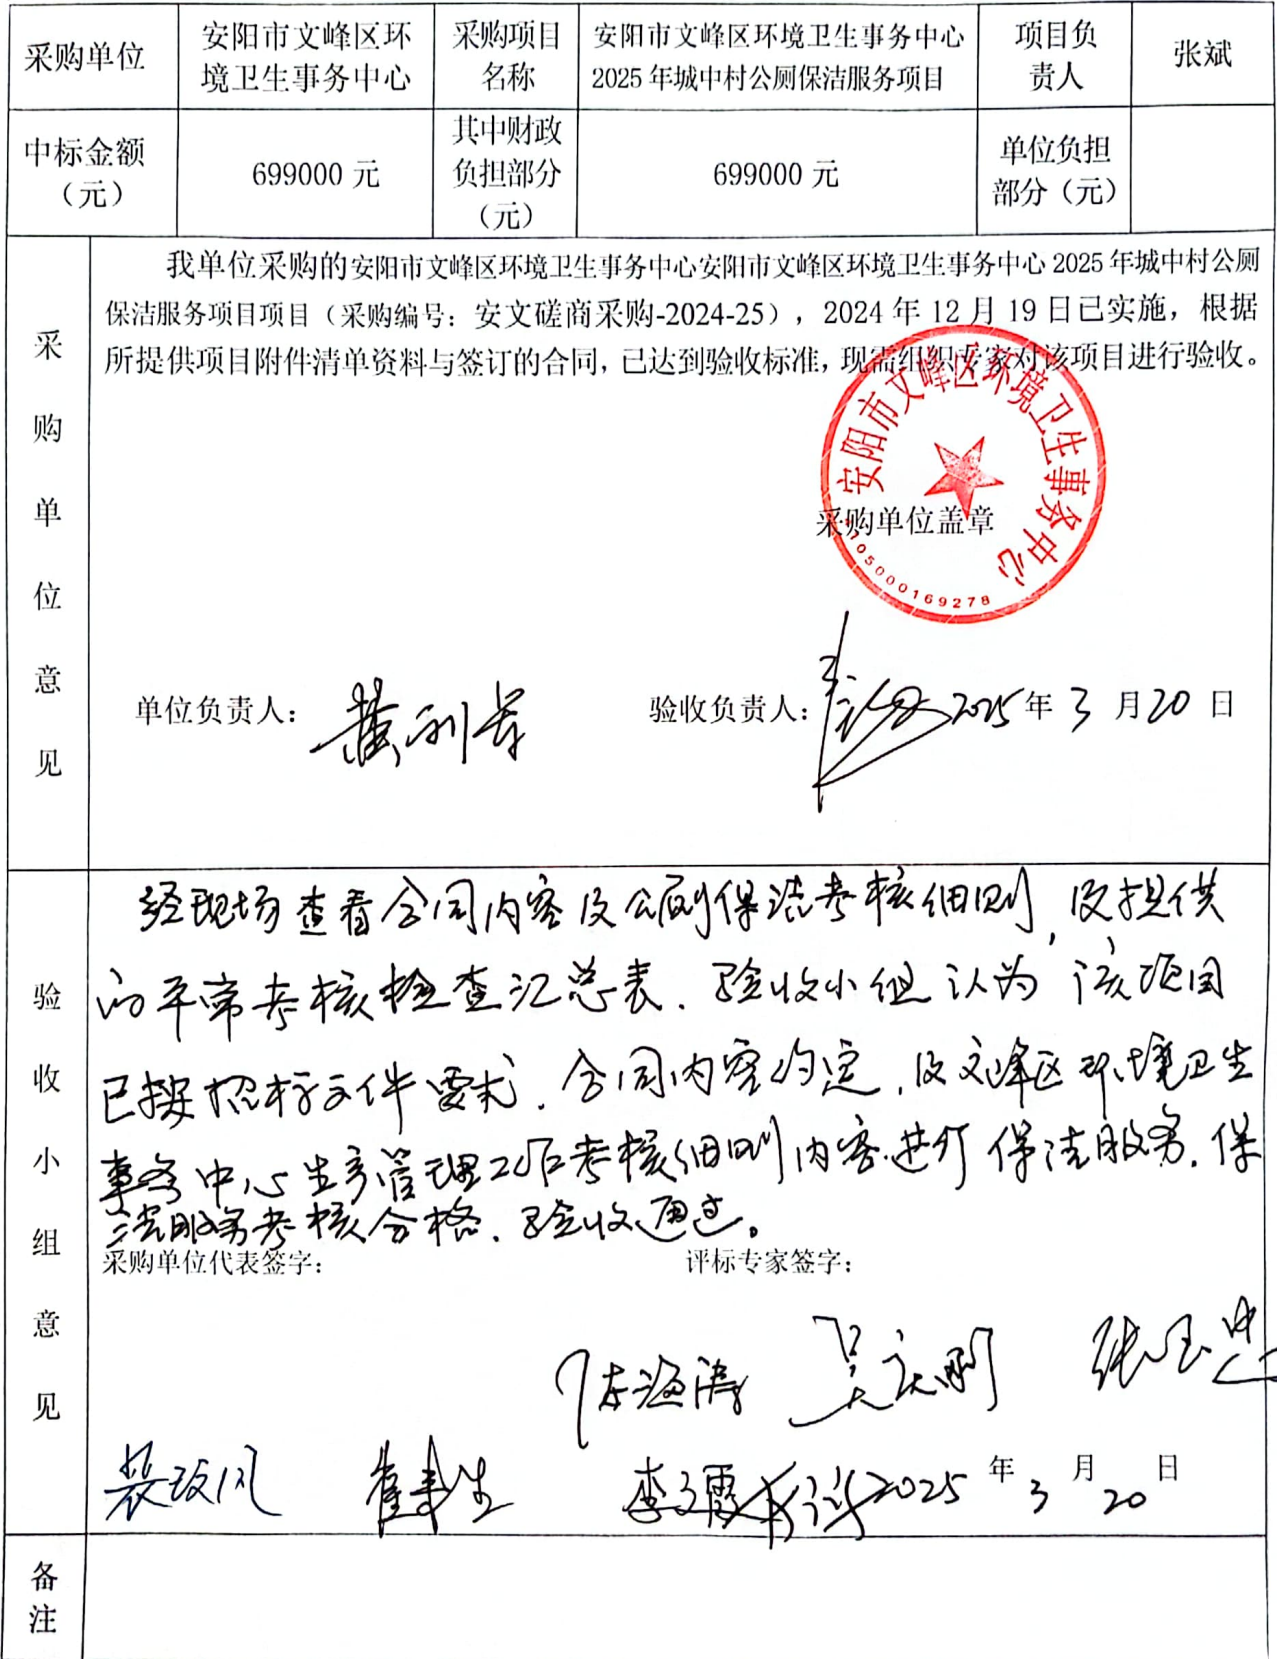 采购单位
安阳市文峰区环
境卫生事务中心
采购项目
名称
安阳市文峰区环境卫生事务中心
2025年城中村公厕保洁服务项目
项目负
责人
张斌
中标金额
（元）
699000 元
其中财政
负担部分
（元）
699000 元
单位负担
部分（元）
采购单位意见
我单位采购的安阳市文峰区环境卫生事务中心安阳市文峰区环境卫生事务中心 2025 年城中村公厕
保洁服务项目项目（采购编号：安文磋商采购-2024-25），2024 年 12 月 19 日已实施，根据
所提供项目附件清单资料与签订的合同，已达到验收标准，现需组织专家对该项目进行验收。
安阳市文峰区环境卫生事务中心
采购单位盖章
05000169278
单位负责人：
验收负责人：
2025年3月20日
验收小组意见
经现场查看合同内容及公厕保洁考核细则，及提供
的平常考核检查汇总表.验收小组认为该项目
已按招标文件要求.合同内容约定.及文峰区环境卫生
事务中心生产管理考核细则内容进行保洁服务.保
洁服务考核合格.验收通过。
采购单位代表签字：
评标专家签字：
陈海涛
吴庆刚
张玉忠
2025年3月20日
备注